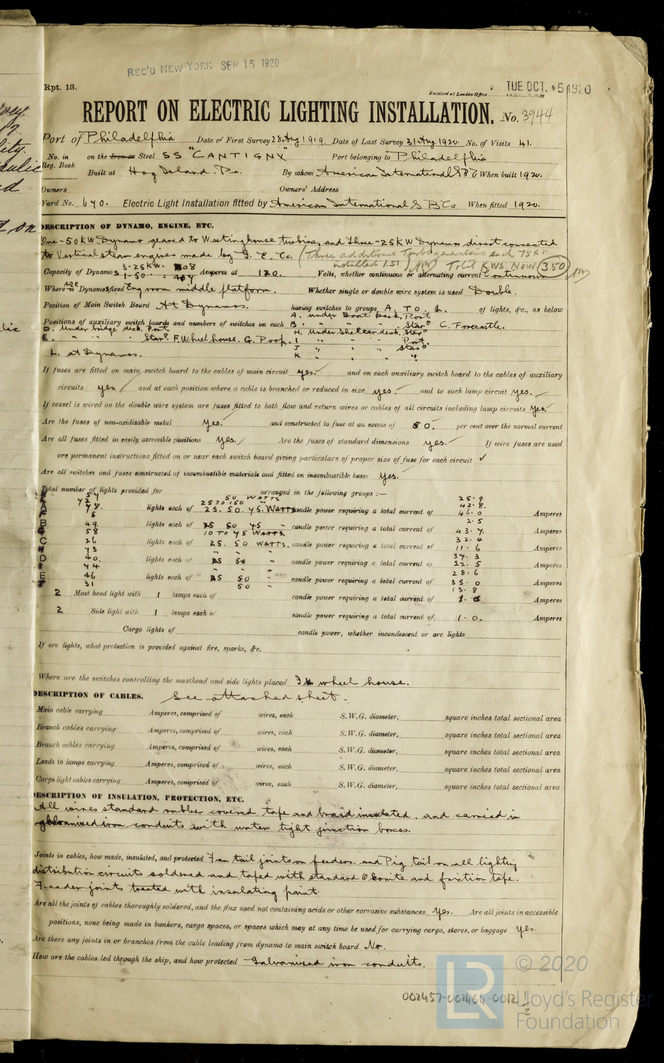 REC'D NEW YORK SEP 15 1920
Rpt. 13.
Received at London Office
TUE OCT. 5 1920
REPORT ON ELECTRIC LIGHTING INSTALLATION. No. 3944
Port of Philadelphia Date of First Survey 23 Aug 1919. Date of Last Survey 31 Aug 1920. No. of Visits 41.
No. in Reg. Book on the Iron or Steel SS "CANTIGNY Port belonging to Philadelphia
Built at Hog Island, Pa. By whom American International S B C When built 1920.
Owners Owners' Address
Yard No. 670. Electric Light Installation fitted by American International S B Co When fitted 1920.
DESCRIPTION OF DYNAMO, ENGINE, ETC.
One - 50 KW Dynamo geared to Westinghouse turbine, and three - 25 KW Dynamos direct connected
to Vertical steam engines made by G. E. Co. (Three additional Turbo generators each 75 K
installed 1.51 Total KWS. Now 350
Capacity of Dynamos 3-25KW. 208 1-50 Amperes at 120. Volts, whether continuous or alternating current Continuous
Where are Dynamos fixed Eng room middle platform. Whether single or double wire system is used Double.
Position of Main Switch Board At Dynamos. having switches to groups A. TO L. of lights, &c., as below
Positions of auxiliary switch boards and numbers of switches on each A. under Boat Deck, Port
B. " " " Star'd C. Forecastle.
D. Under bridge deck, Port H. Under Shelter deck, Star'd
E. " " " Star'd F. Wheel house. G. Poop. I " " " Port
J " " " Star'd
K " " "
L. at Dynamos.
If fuses are fitted on main switch board to the cables of main circuit yes. and on each auxiliary switch board to the cables of auxiliary
circuits yes and at each position where a cable is branched or reduced in size yes. and to each lamp circuit yes.
If vessel is wired on the double wire system are fuses fitted to both flow and return wires or cables of all circuits including lamp circuits Yes.
Are the fuses of non-oxidizable metal Yes. and constructed to fuse at an excess of 50. per cent over the normal current
Are all fuses fitted in easily accessible positions Yes. Are the fuses of standard dimensions yes. If wire fuses are used
are permanent instructions fitted on or near each switch board giving particulars of proper size of fuse for each circuit ✓
Are all switches and fuses constructed of incombustible materials and fitted on incombustible bases Yes.
Total number of lights provided for arranged in the following groups :—
54 50 WATTS 25.9
72 25 TO 150 42.8
A 78. lights each of 25. 50. 75. WATTS candle power requiring a total current of 46.0 Amperes
5 2.5
B 49 lights each of 25 50 75 " candle power requiring a total current of 43.7. Amperes
58 10 TO 75 WATTS. 32.4
C 26 lights each of 25. 50 WATTS. candle power requiring a total current of 11.6 Amperes
73 " " " 34.3
D 40. lights each of 25 50 " candle power requiring a total current of 22.5 Amperes
44 " " " 23.6
E 46 lights each of 25 50 " candle power requiring a total current of 35.0 Amperes
31 50 " 13.8
2 Mast head light with 1 lamps each of candle power requiring a total current of 1.0 Amperes
2 Side light with 1 lamps each of candle power requiring a total current of 1.0. Amperes
Cargo lights of candle power, whether incandescent or arc lights
If arc lights, what protection is provided against fire, sparks, &c.
Where are the switches controlling the masthead and side lights placed In wheel house.
DESCRIPTION OF CABLES. See attached sheet.
Main cable carrying Amperes, comprised of wires, each S.W.G. diameter, square inches total sectional area
Branch cables carrying Amperes, comprised of wires, each S.W.G. diameter, square inches total sectional area
Branch cables carrying Amperes, comprised of wires, each S.W.G. diameter, square inches total sectional area
Leads to lamps carrying Amperes, comprised of wires, each S.W.G. diameter, square inches total sectional area
Cargo light cables carrying Amperes, comprised of wires, each S.W.G. diameter, square inches total sectional area
DESCRIPTION OF INSULATION, PROTECTION, ETC.
All wires standard rubber covered tape and braid insulated. and carried in
galvanised iron conduits with water tight junction boxes.
Joints in cables, how made, insulated, and protected Fan tail joints on feeders and Pig tail on all lighting
distribution circuits soldered and taped with standard Okonite and friction tape.
Feeder joints treated with insulating paint
Are all the joints of cables thoroughly soldered, and the flux used not containing acids or other corrosive substances Yes. Are all joints in accessible
positions, none being made in bunkers, cargo spaces, or spaces which may at any time be used for carrying cargo, stores, or baggage yes.
Are there any joints in or branches from the cable leading from dynamo to main switch board No.
How are the cables led through the ship, and how protected Galvanised iron conduits.
© 2020
Lloyd's Register
Foundation
LR